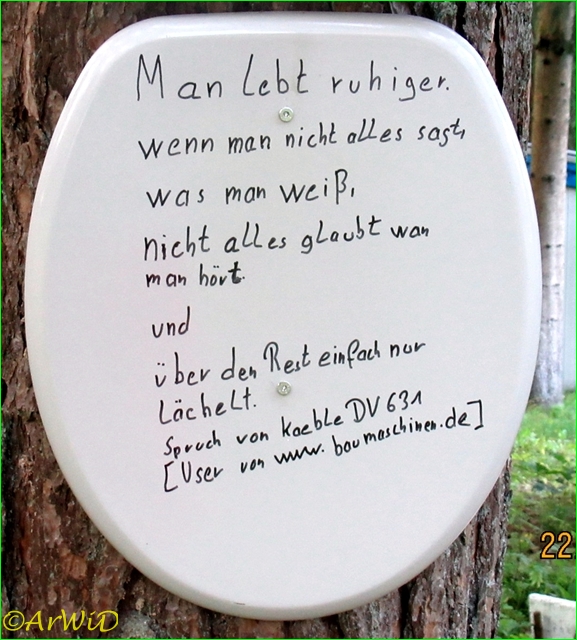 Man lebt ruhiger.
wenn man nicht alles sagt,
was man weiß,
nicht alles glaubt wan
man hört.
und
über den Rest einfach nur
Lächelt.
Spruch von Kaeble DV 631
[User von www.baumaschinen.de]
22
©ArWiD